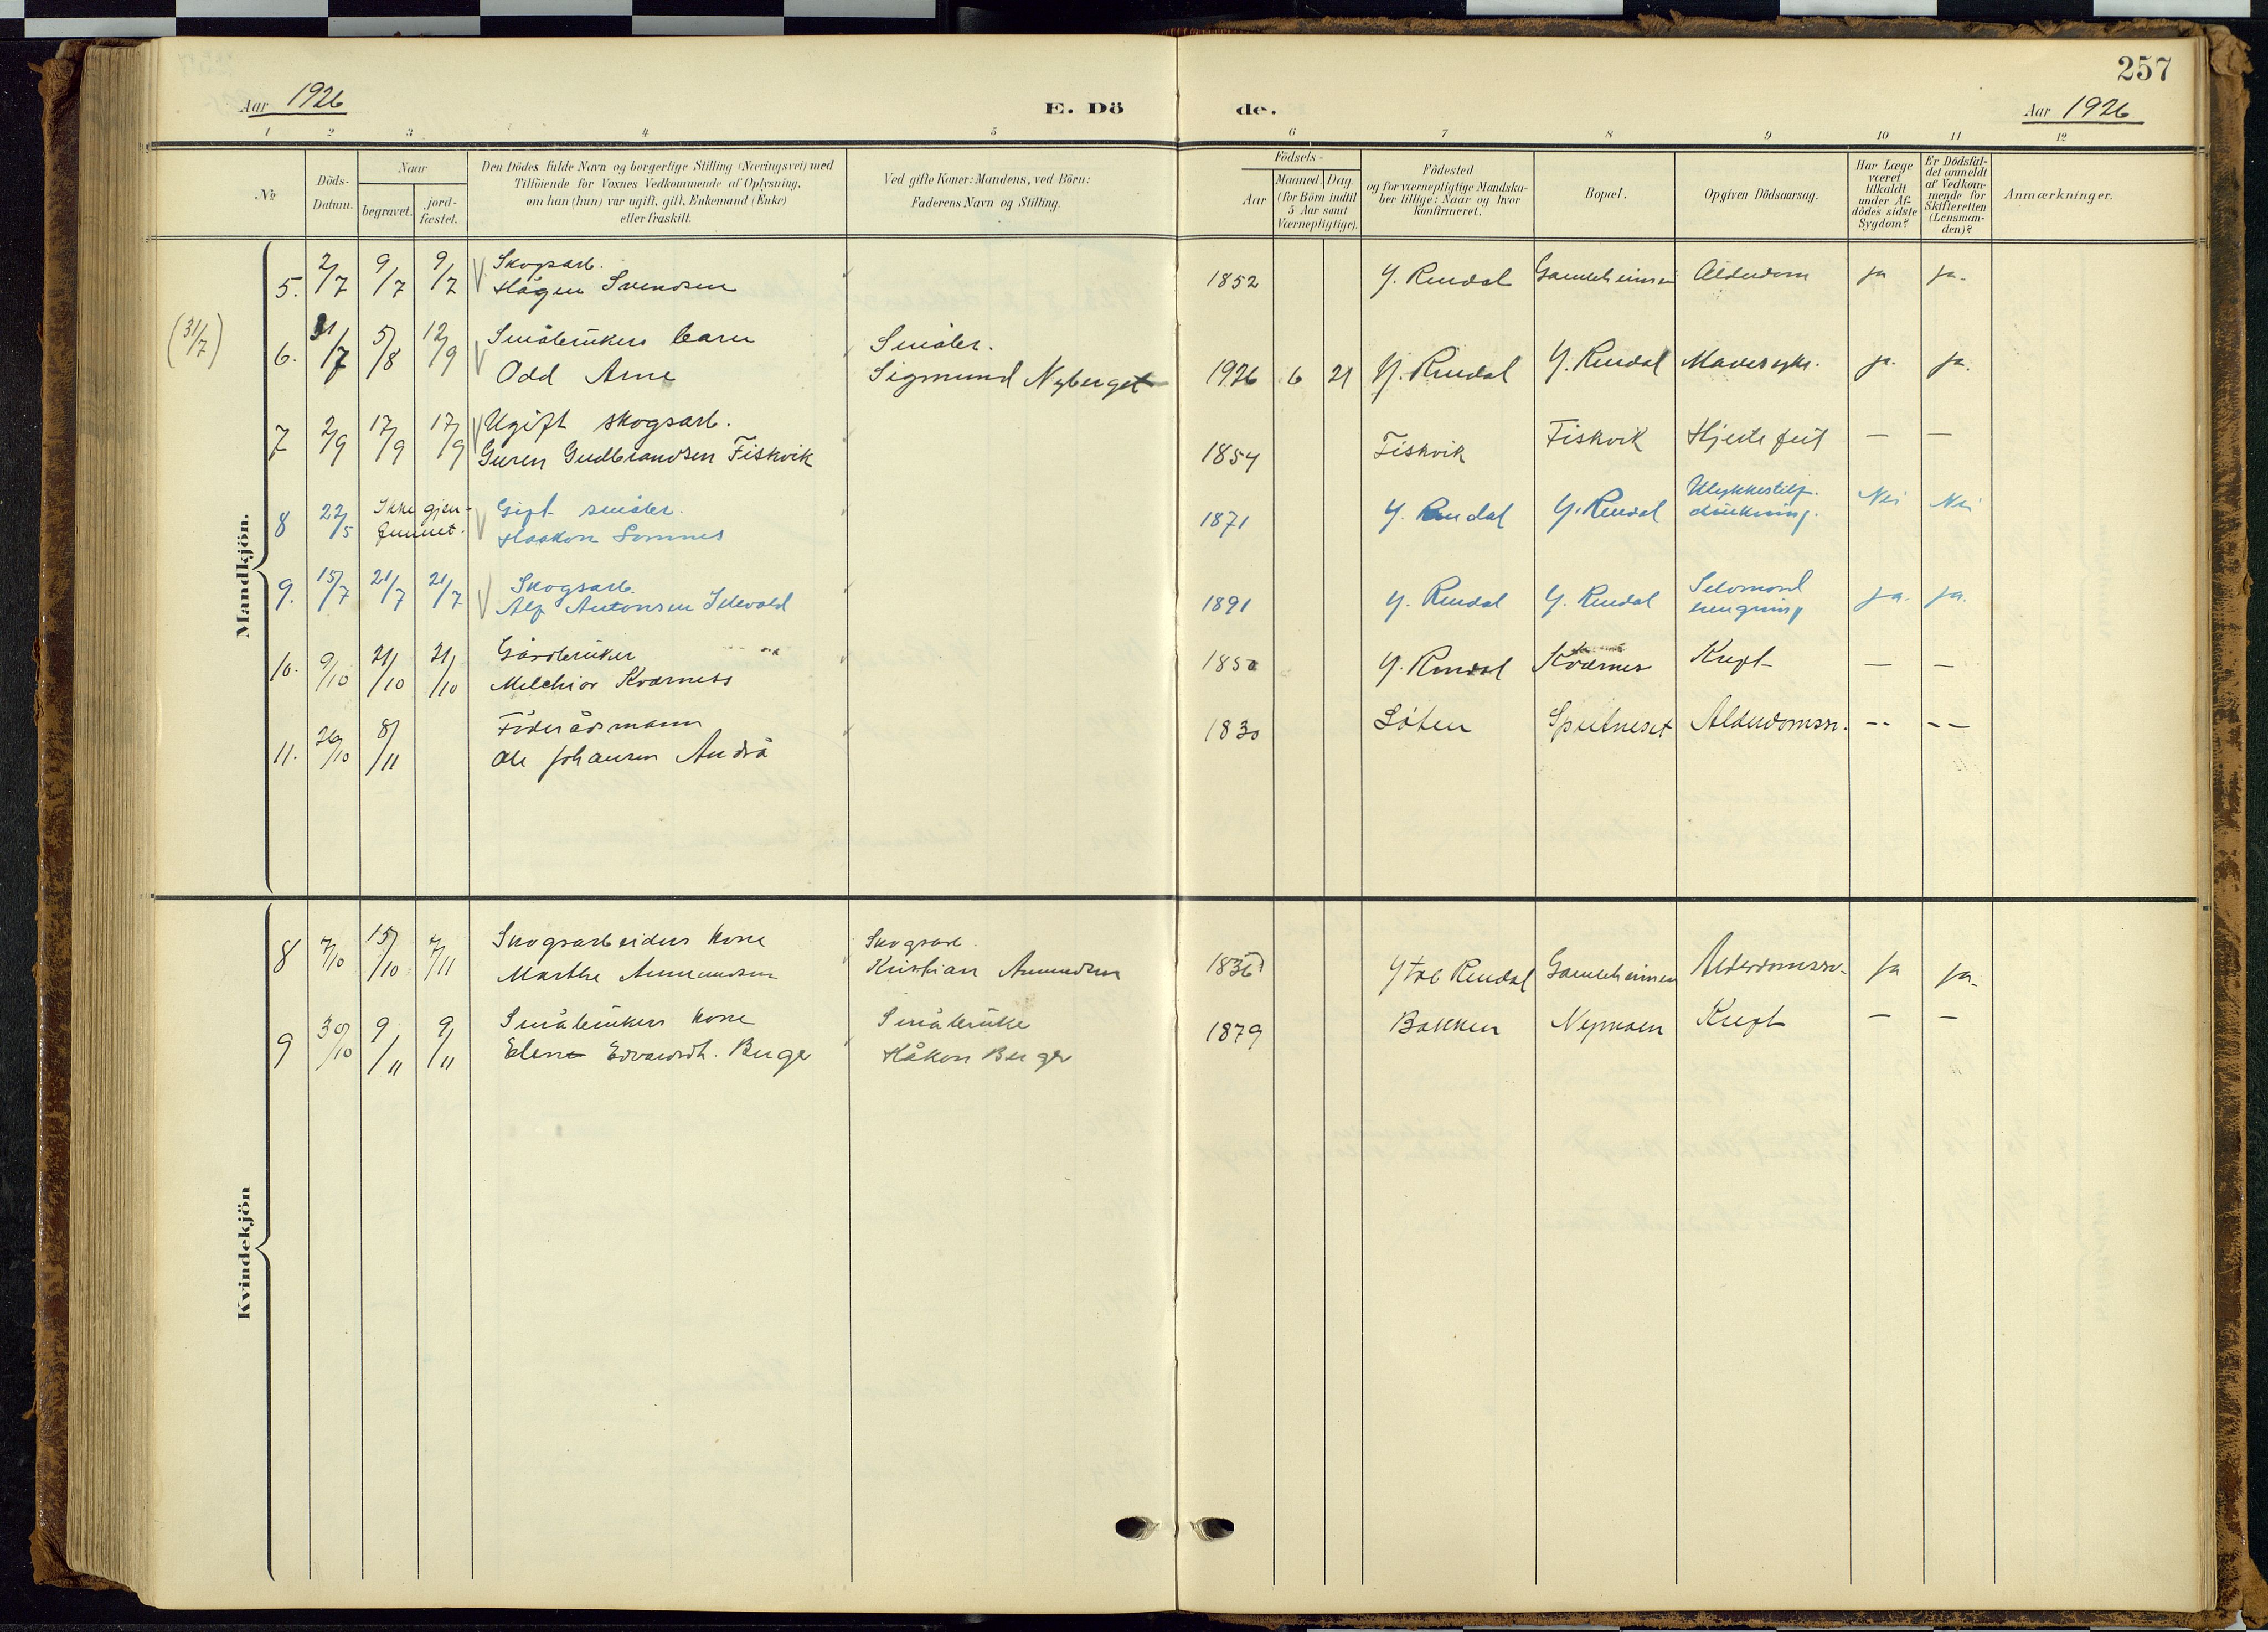 257
Aar 1926
E. Dö
de.
Aar 1926
1 2 3 4 5 6 7 8 9 10 11 12
No
Döds-
Datum.
Naar
begravet.
jord-
fæstet.
Den Dödes fulde Navn og borgerlige Stilling (Næringsvei) med
Tilföiende for Voxnes Vedkommende af Oplysning,
om han (hun) var ugift, gift, Enkemand (Enke)
eller fraskilt.
Ved gifte Koner: Mandens, ved Börn:
Faderens Navn og Stilling.
Födsels-
Aar
Maaned. Dag.
(for Börn indtil
5 Aar samt
Værnepligtige).
Födested
og for værnepligtige Mandska-
ber tillige: Naar og hvor
konfirmeret.
Bopæl.
Opgiven Dödsaarsag.
Har Læge
været
tilkaldt
under Af-
dödes sidste
Sygdom?
Er Dödsfal-
det anmeldt
af Vedkom-
mende for
Skifteretten
(Lensman-
den)?
Anmærkninger.
Mandkjön.
5. 2/7 9/7 9/7 Skogsarb.
Hågen Svendsen 1852 Y. Rendal Gamleheimen Alderdom ja ja.
(31/7)
6. 31/7 5/8 12/9 Småbrukers barn Småbr.
Odd Arne Sigmund Nyberget 1926 6 21 Y. Rendal Y. Rendal Mavesyke. ja. ja.
7 2/9 17/9 17/9 Ugift skogsarb.
Guren Gudbrandsen Fiskvik 1854 Fiskvik Fiskvik Hjertefeil — —
8 22/5 Ikke gjen-
funnet. Gift småbr.
Haakon Lomnes 1871 Y. Rendal Y. Rendal Ulykkestilf.
drukning. Nei Nei
9. 15/7 21/7 21/7 Skogsarb.
Alf Antonsen 1891 Y. Rendal Y. Rendal Selvmord
hengning ja. ja.
10. 9/10 21/10 21/10 Gårdbruker
Melchior Kværness 185 Y. Rendal Kværnes Kreft — —
11. 26/10 8/11 Föderådsmann
Ole Johansen Andrå 1830 Löten Alderdomssv. -- --
Kvindekjön
8 7/10 15/10 7/11 Skogsarbeiders kone Skogsarb.
Marthe Amundsen Kristian Amundsen 1836 Ytre Rendal Gamleheimen Alderdomssv. ja ja.
9 30/10 9/11 9/11 Småbrukers kone Småbruker
Elene Edvardsdt. Berge Håkon Berge 1879 Bakken Nymoen Kreft — —